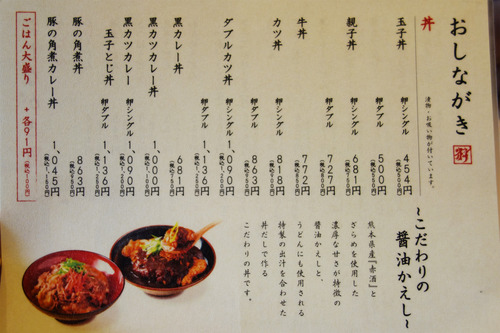 おしながき
丼
漬物・お吸い物が付いています。
玉子丼 卵シングル 454円(税込500円)
卵ダブル 500円(税込550円)
親子丼 卵シングル 681円(税込750円)
卵ダブル 727円(税込800円)
牛丼 772円(税込850円)
カツ丼 卵シングル 818円(税込900円)
卵ダブル 863円(税込950円)
ダブルカツ丼 卵シングル 1,090円(税込1,200円)
卵ダブル 1,136円(税込1,250円)
黒カレー丼 681円(税込750円)
黒カツカレー丼 1,000円(税込1,100円)
黒カツカレー 卵シングル 1,090円(税込1,200円)
玉子とじ丼 卵ダブル 1,136円(税込1,250円)
豚の角煮丼 863円(税込950円)
豚の角煮カレー丼 1,045円(税込1,150円)
ごはん大盛り + 各91円(税込100円)
~こだわりの
醤油かえし~
熊本県産『赤酒』と
ざらめを使用した
濃厚な甘さが特徴の
醤油かえしと、
うどんにも使用される
特製の出汁を合わせた
丼だしで作る
こだわりの丼です。